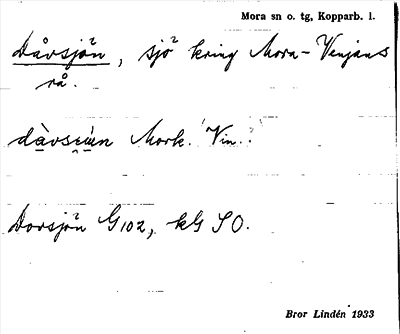 Mora sn o. tg, Kopparb. l.
Dåvsjön, sjö kring Mora-Venjans
rå.
Mork. Vin.
Dovsjön G102, kG SO.
Bror Lindén 1933